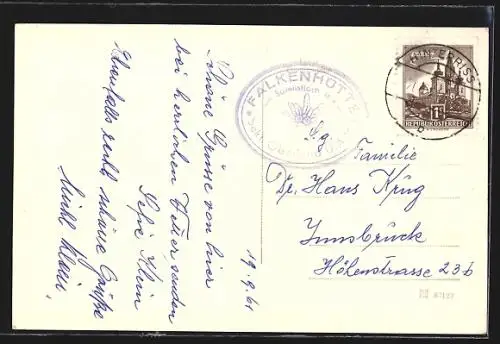 Schöne Grüsse von hier
bei herrlichem Wetter senden
Sepp Klein
Ebenfalls recht schöne Grüße
19.9.61
FALKENHÜTTE
HINTERRISS
1S
REPUBLIK ÖSTERREICH
Sg.
Familie
Dr. Hans Krug
Innsbrück
Höhenstrasse 23b